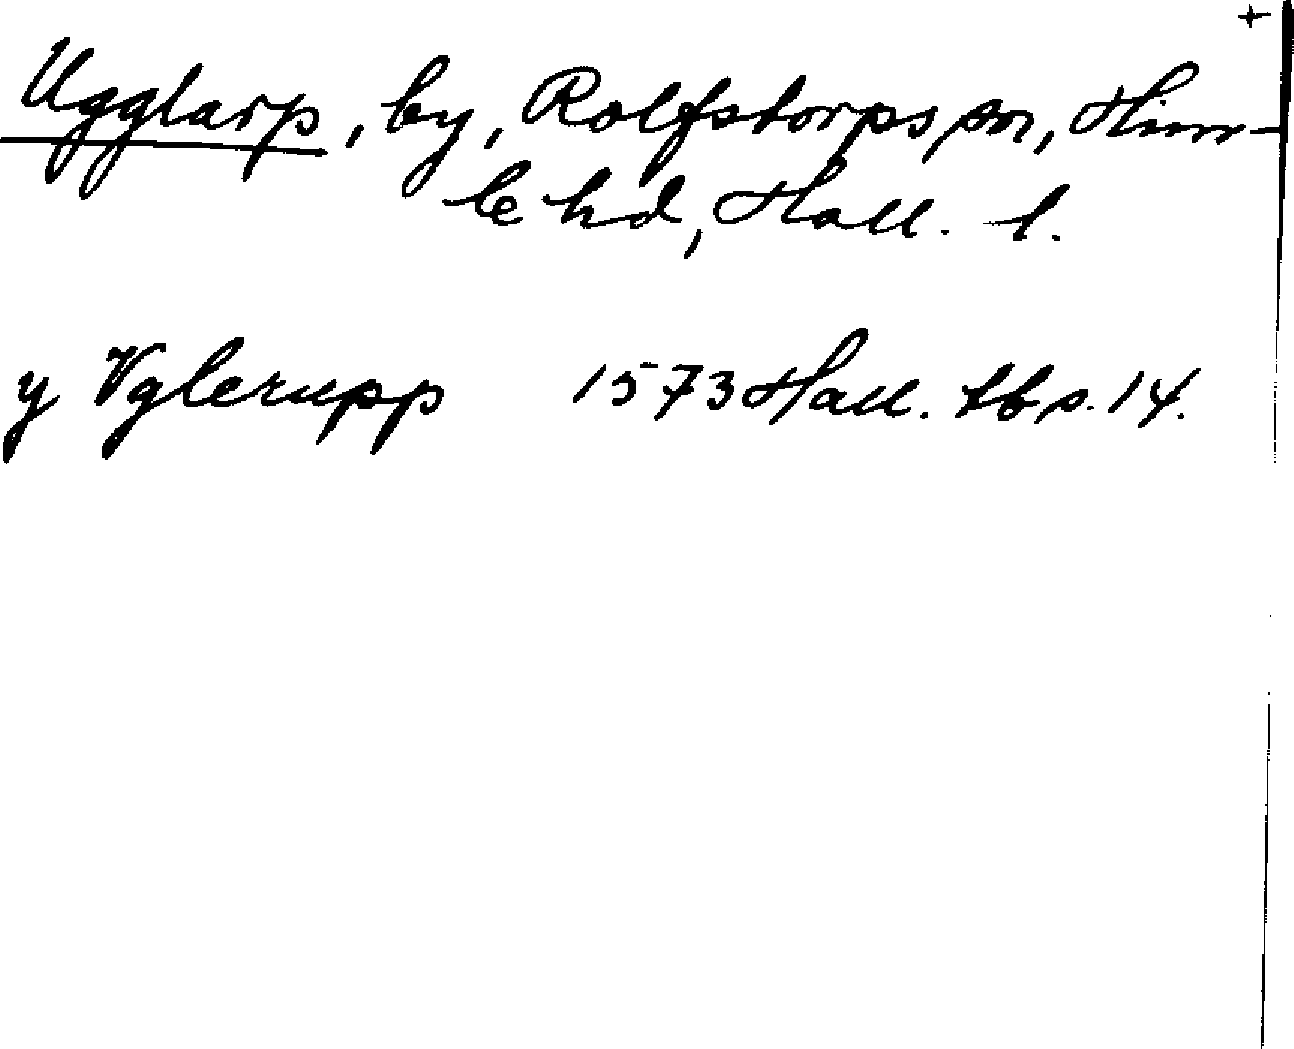 +
Ugglarp, by, Rolfstorps sn, Him-
le hd, Hall. l.
y Vglerupp 1573 Hall. tb s. 14.